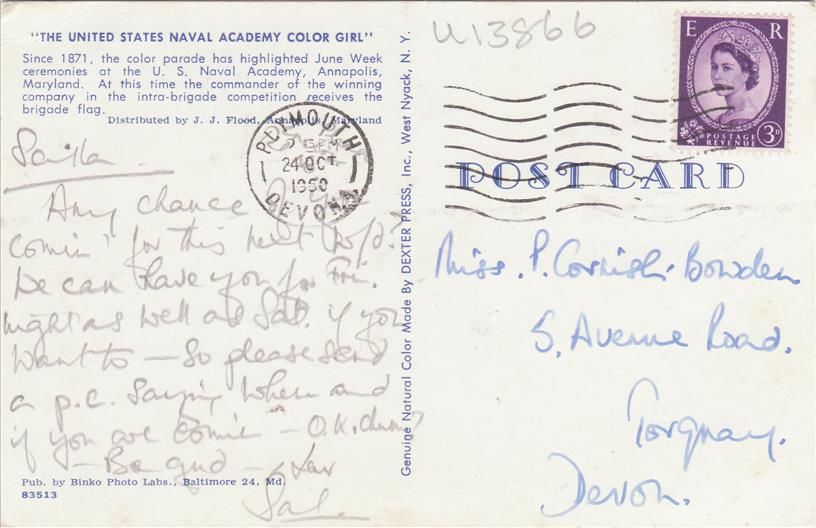 "THE UNITED STATES NAVAL ACADEMY COLOR GIRL"
Since 1871, the color parade has highlighted June Week
ceremonies at the U. S. Naval Academy, Annapolis,
Maryland. At this time the commander of the winning
company in the intra-brigade competition receives the
brigade flag.
Distributed by J. J. Flood, Annapolis, Maryland
Any chance
comin' for this next
We can have you for Fri.
night as well as Sat. if you
want to — so please send
a p.c. saying when and
if you are comin — O.K. chum?
— Be gud —
Pub. by Binko Photo Labs., Baltimore 24, Md.
83513
Genuine Natural Color Made By DEXTER PRESS, Inc., West Nyack, N. Y.
U13866
PLYMOUTH
24 OCT
1960
DEVON
E R
POSTAGE
REVENUE
3D
POST CARD
Miss. P. Cornish-Bowden
5, Avenue Road.
Torquay.
Devon.